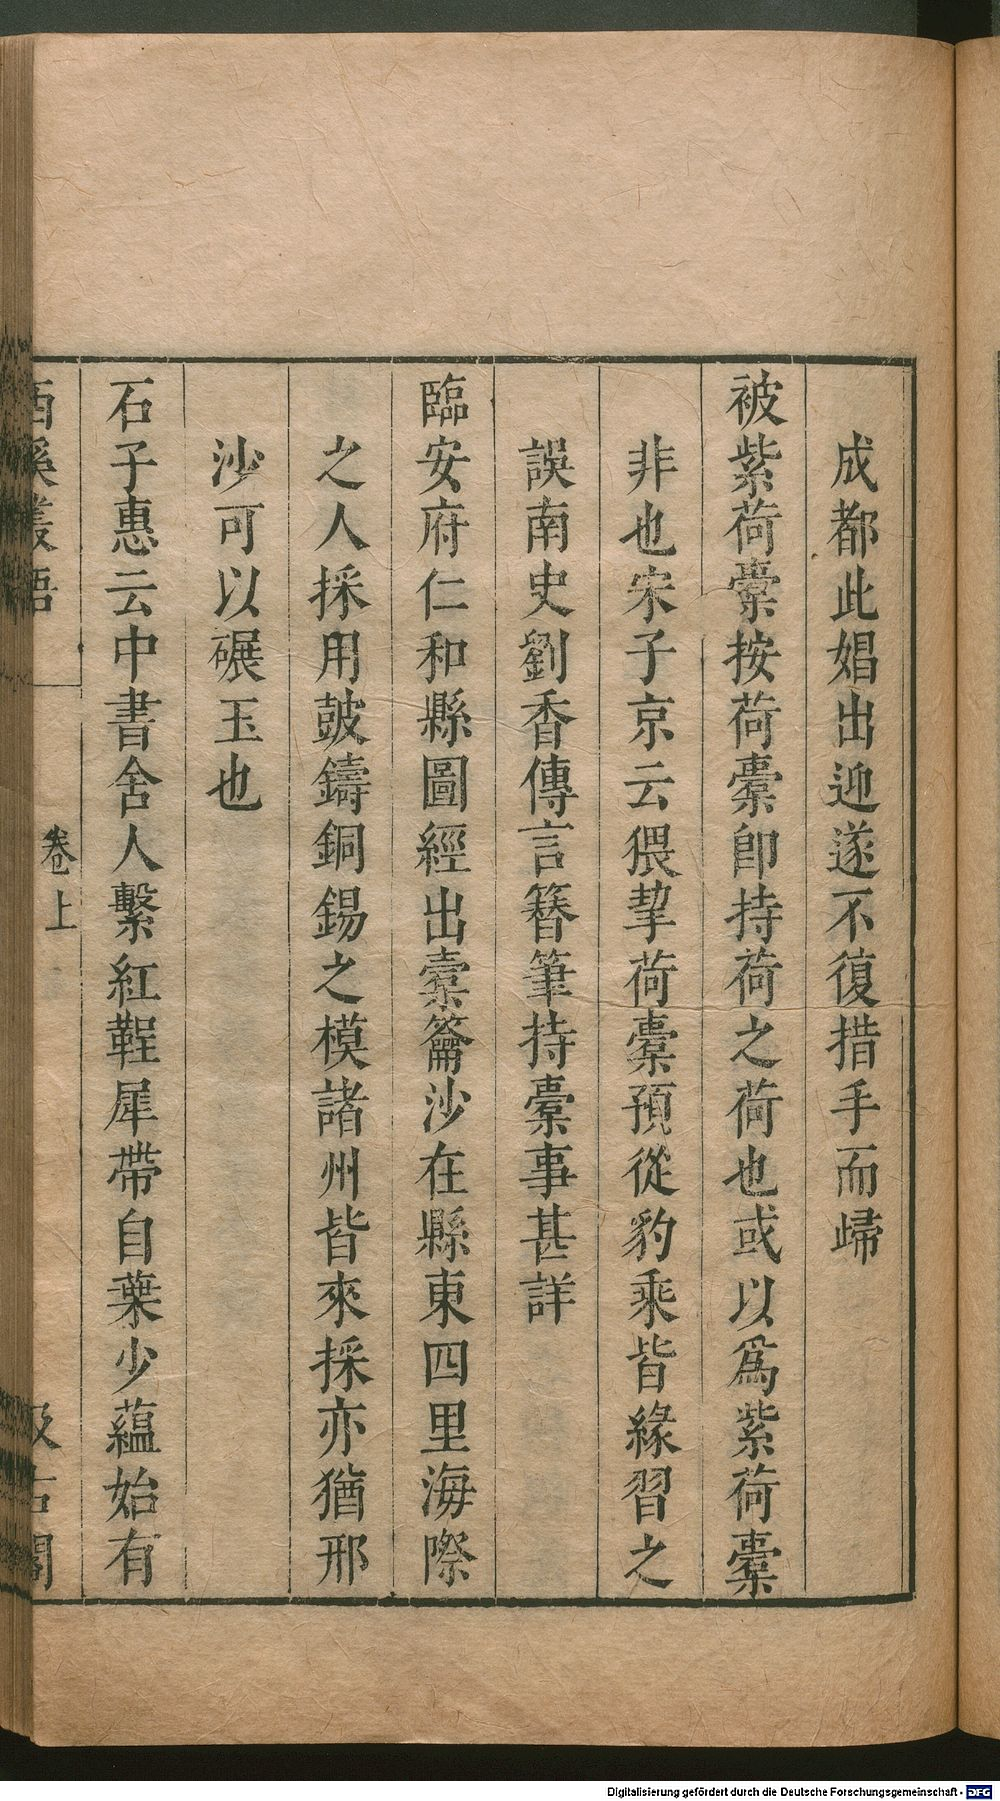 成都此娼出迎遂不復措手而歸
被紫荷橐按荷橐卽持荷之荷也或以爲紫荷橐
非也宋子京云猥挈荷橐預從豹乘皆緣習之
誤南史劉杳傳言簪筆持橐事甚詳
臨安府仁和縣圖經出橐籥沙在縣東四里海際
之人採用皷鑄銅錫之模諸州皆來採亦猶邢
沙可以碾玉也
石子惠云中書舍人繫紅鞓犀帶自葉少蘊始有
西溪叢語
卷上
汲古閣
Digitalisierung gefördert durch die Deutsche Forschungsgemeinschaft - DFG